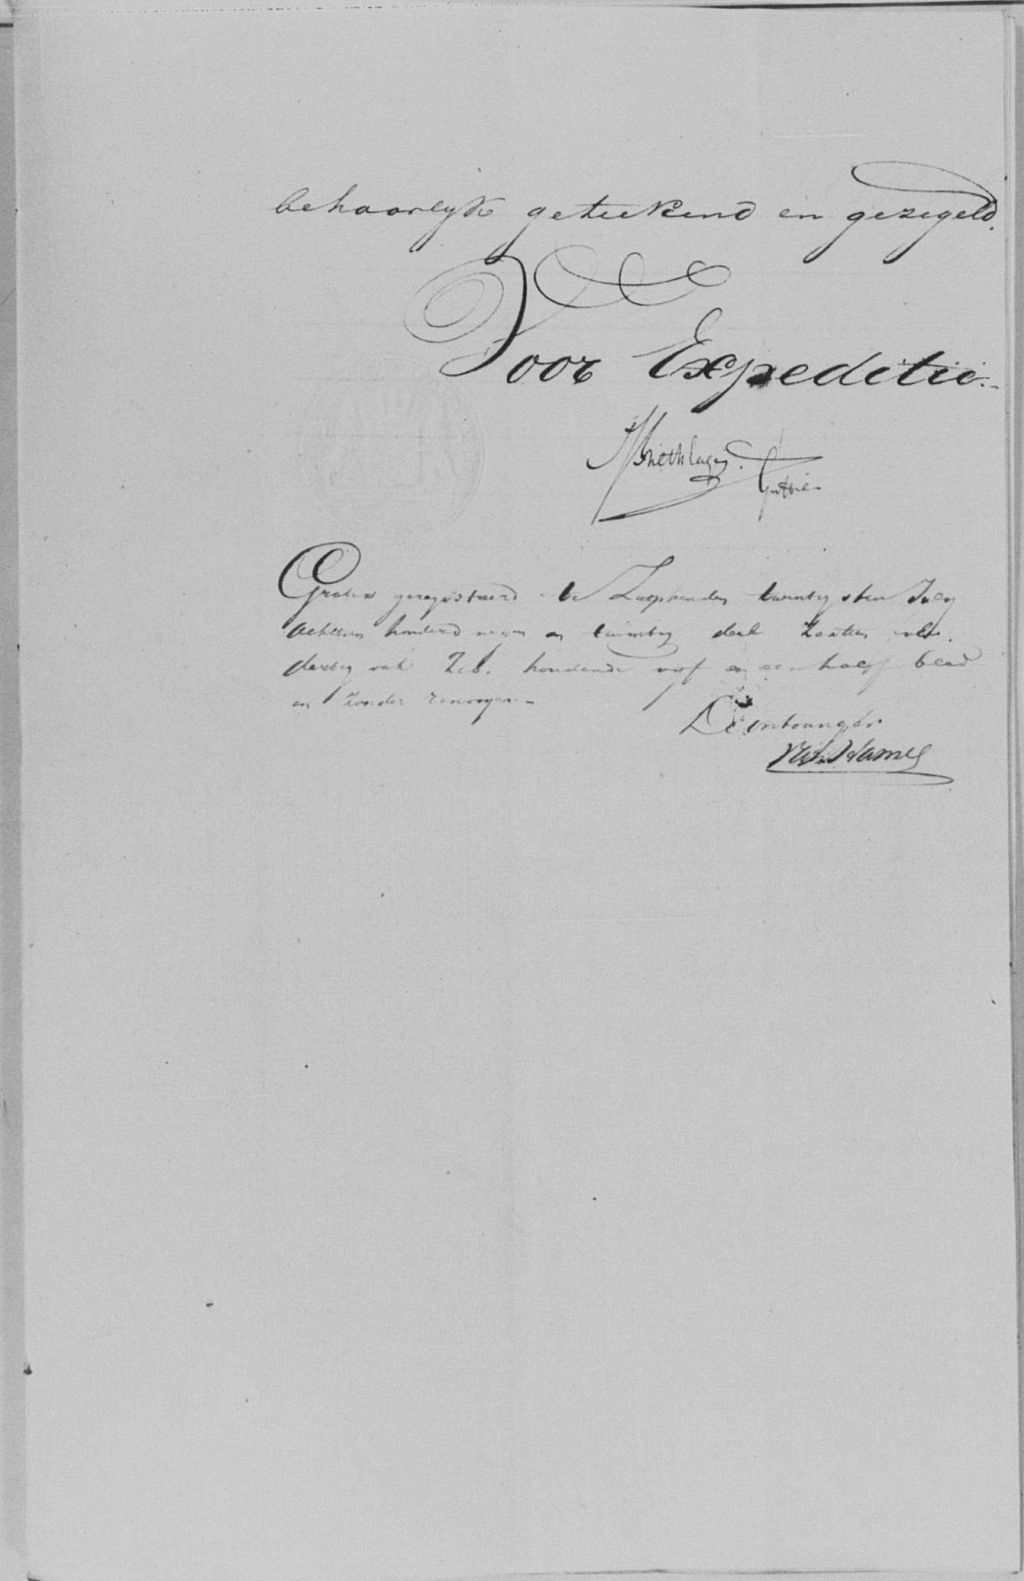 behoorlyk geteekend en gezegeld.
Voor Expeditie.
Griffier
Gratis geregistreerd te Zutphen den twintigsten July
achttien honderd negen en twintig deel zestien folio
dertig vak Zes. houdende vyf en een half blad
en zonder renvoyen
De Ontvanger